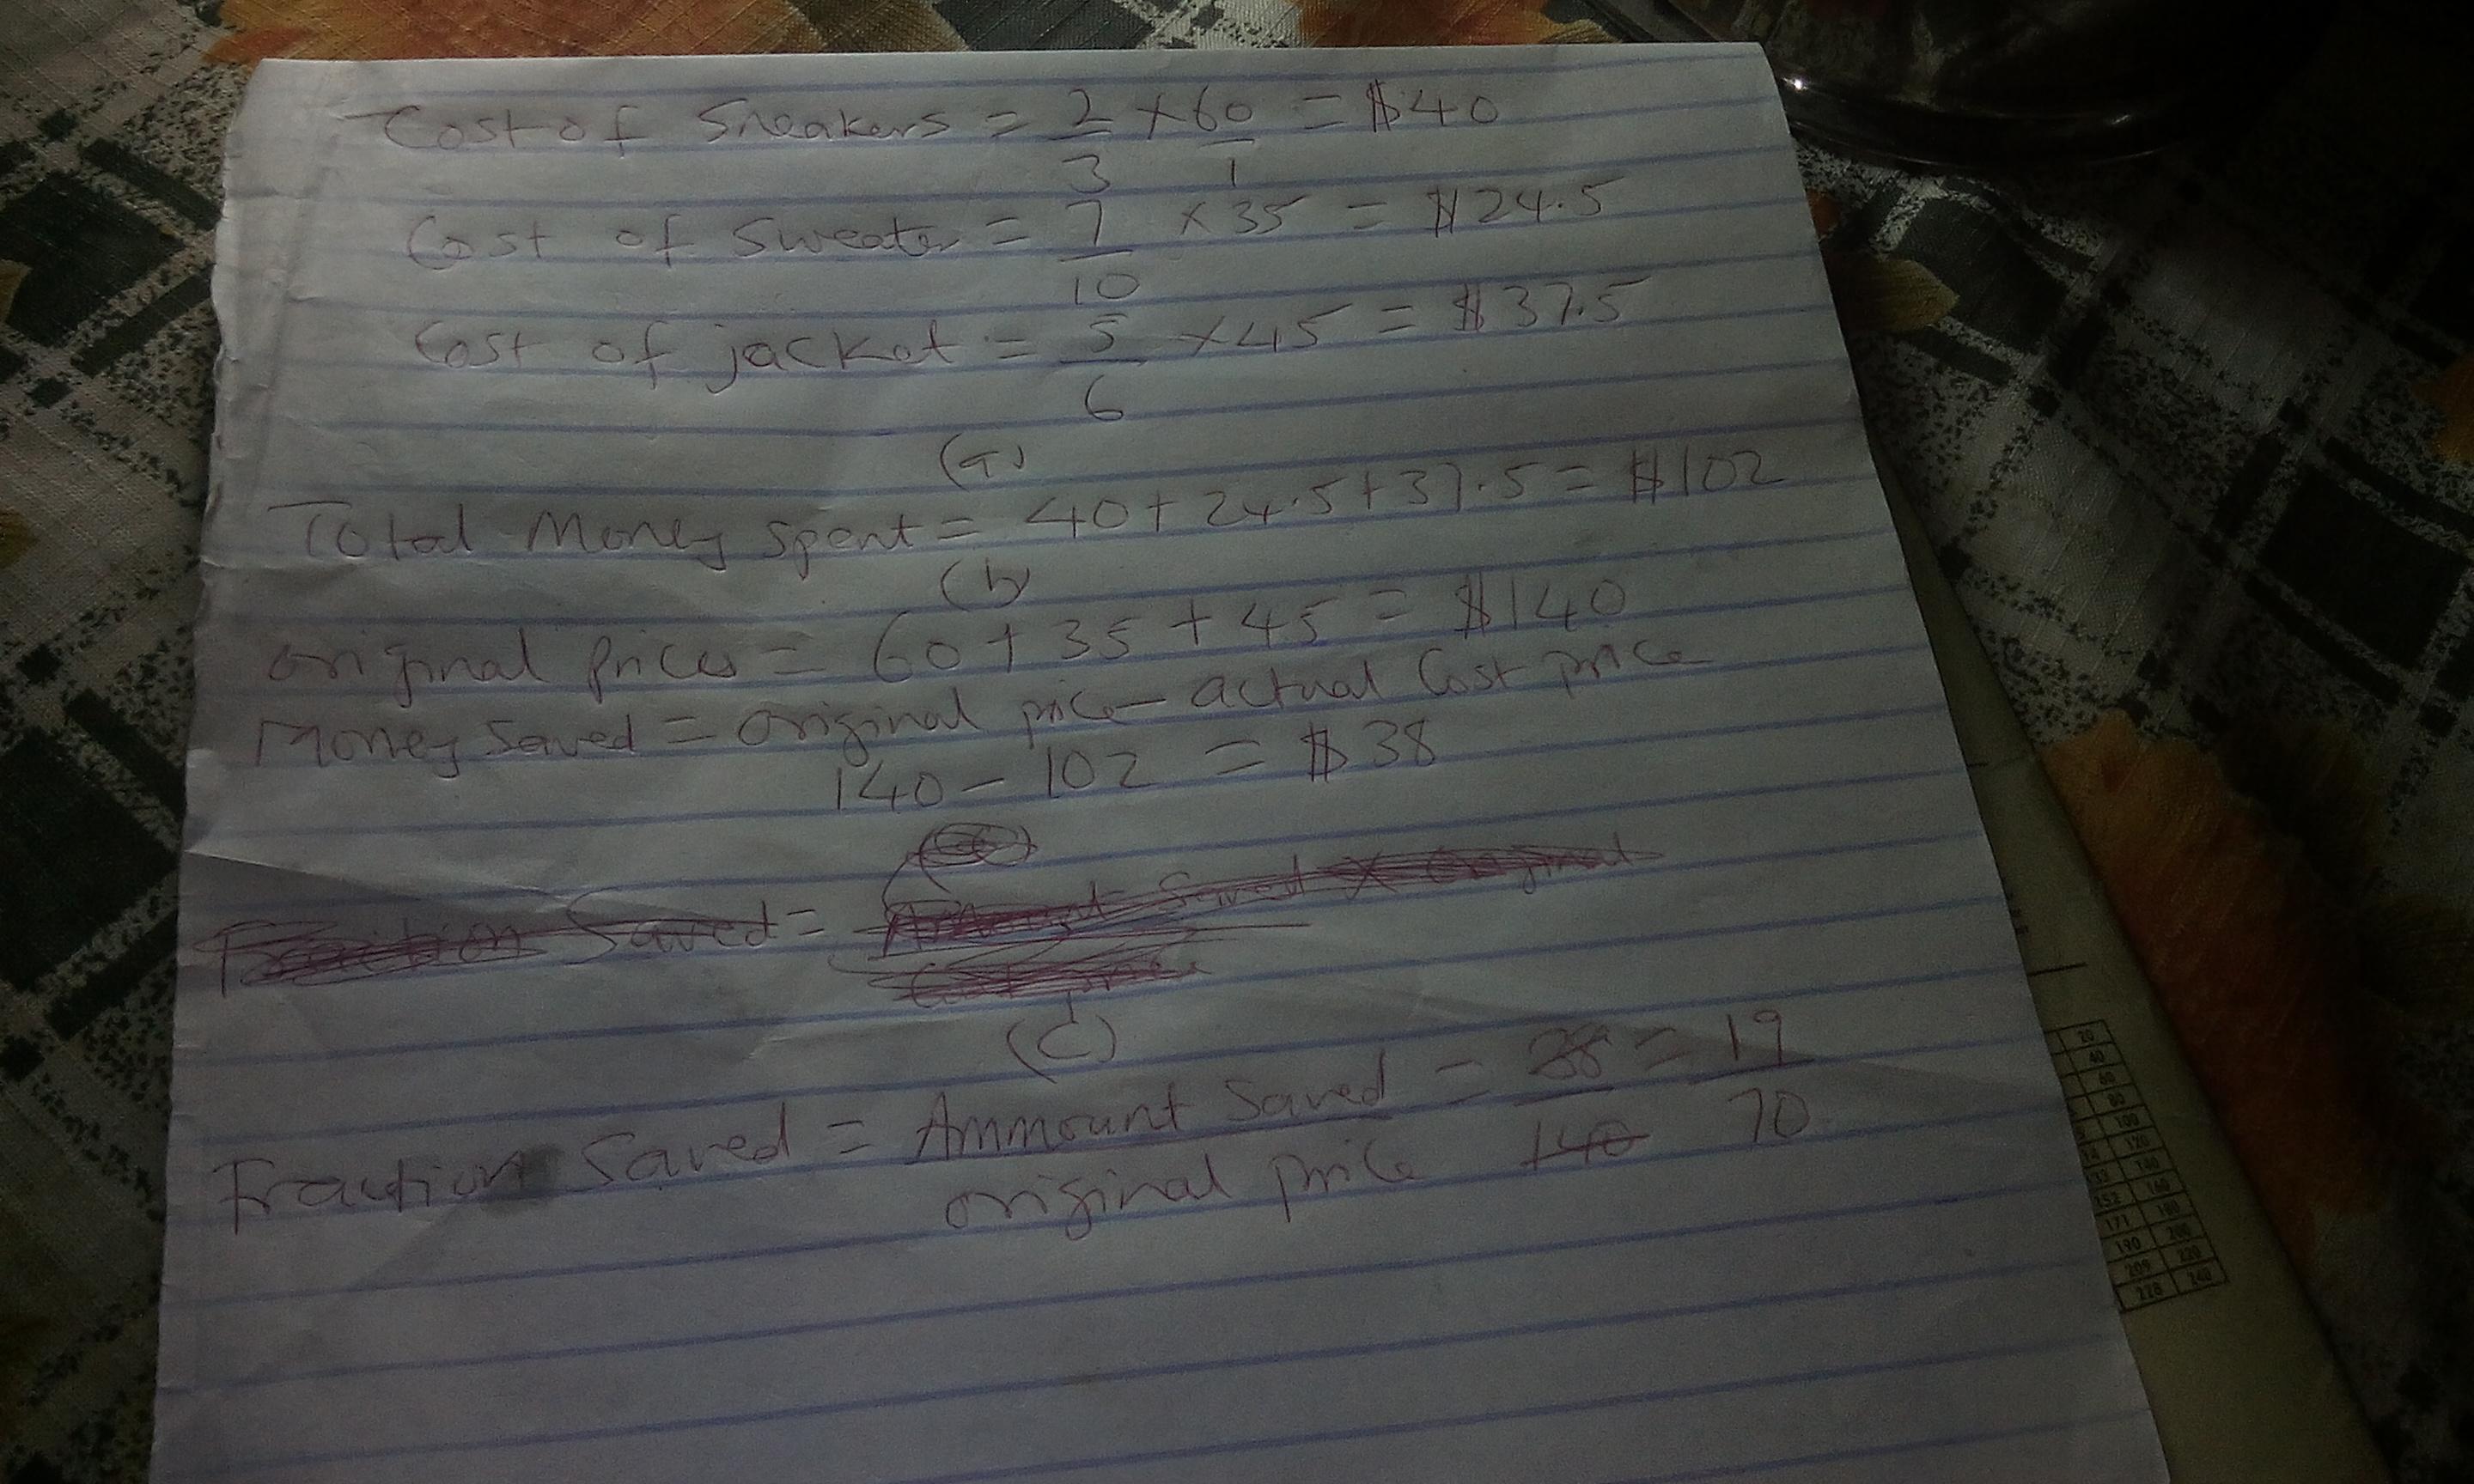 Cost of Sneakers = 2/3 × 60/1 = $40
Cost of Sweater = 7/10 × 35 = $24.5
Cost of jacket = 5/6 × 45 = $37.5
(a)
Total Money Spent = 40 + 24.5 + 37.5 = $102
(b)
original prices = 60 + 35 + 45 = $140
Money Saved = original price - actual Cost price
140 - 102 = $38
Fraction Saved = Ammount Saved × Original
Cost price
(c)
Fraction Saved = Ammount Saved / original price = 38/140 = 19/70
20
40
60
80
100
120
140
152 160
171 180
190 200
209 220
228 240